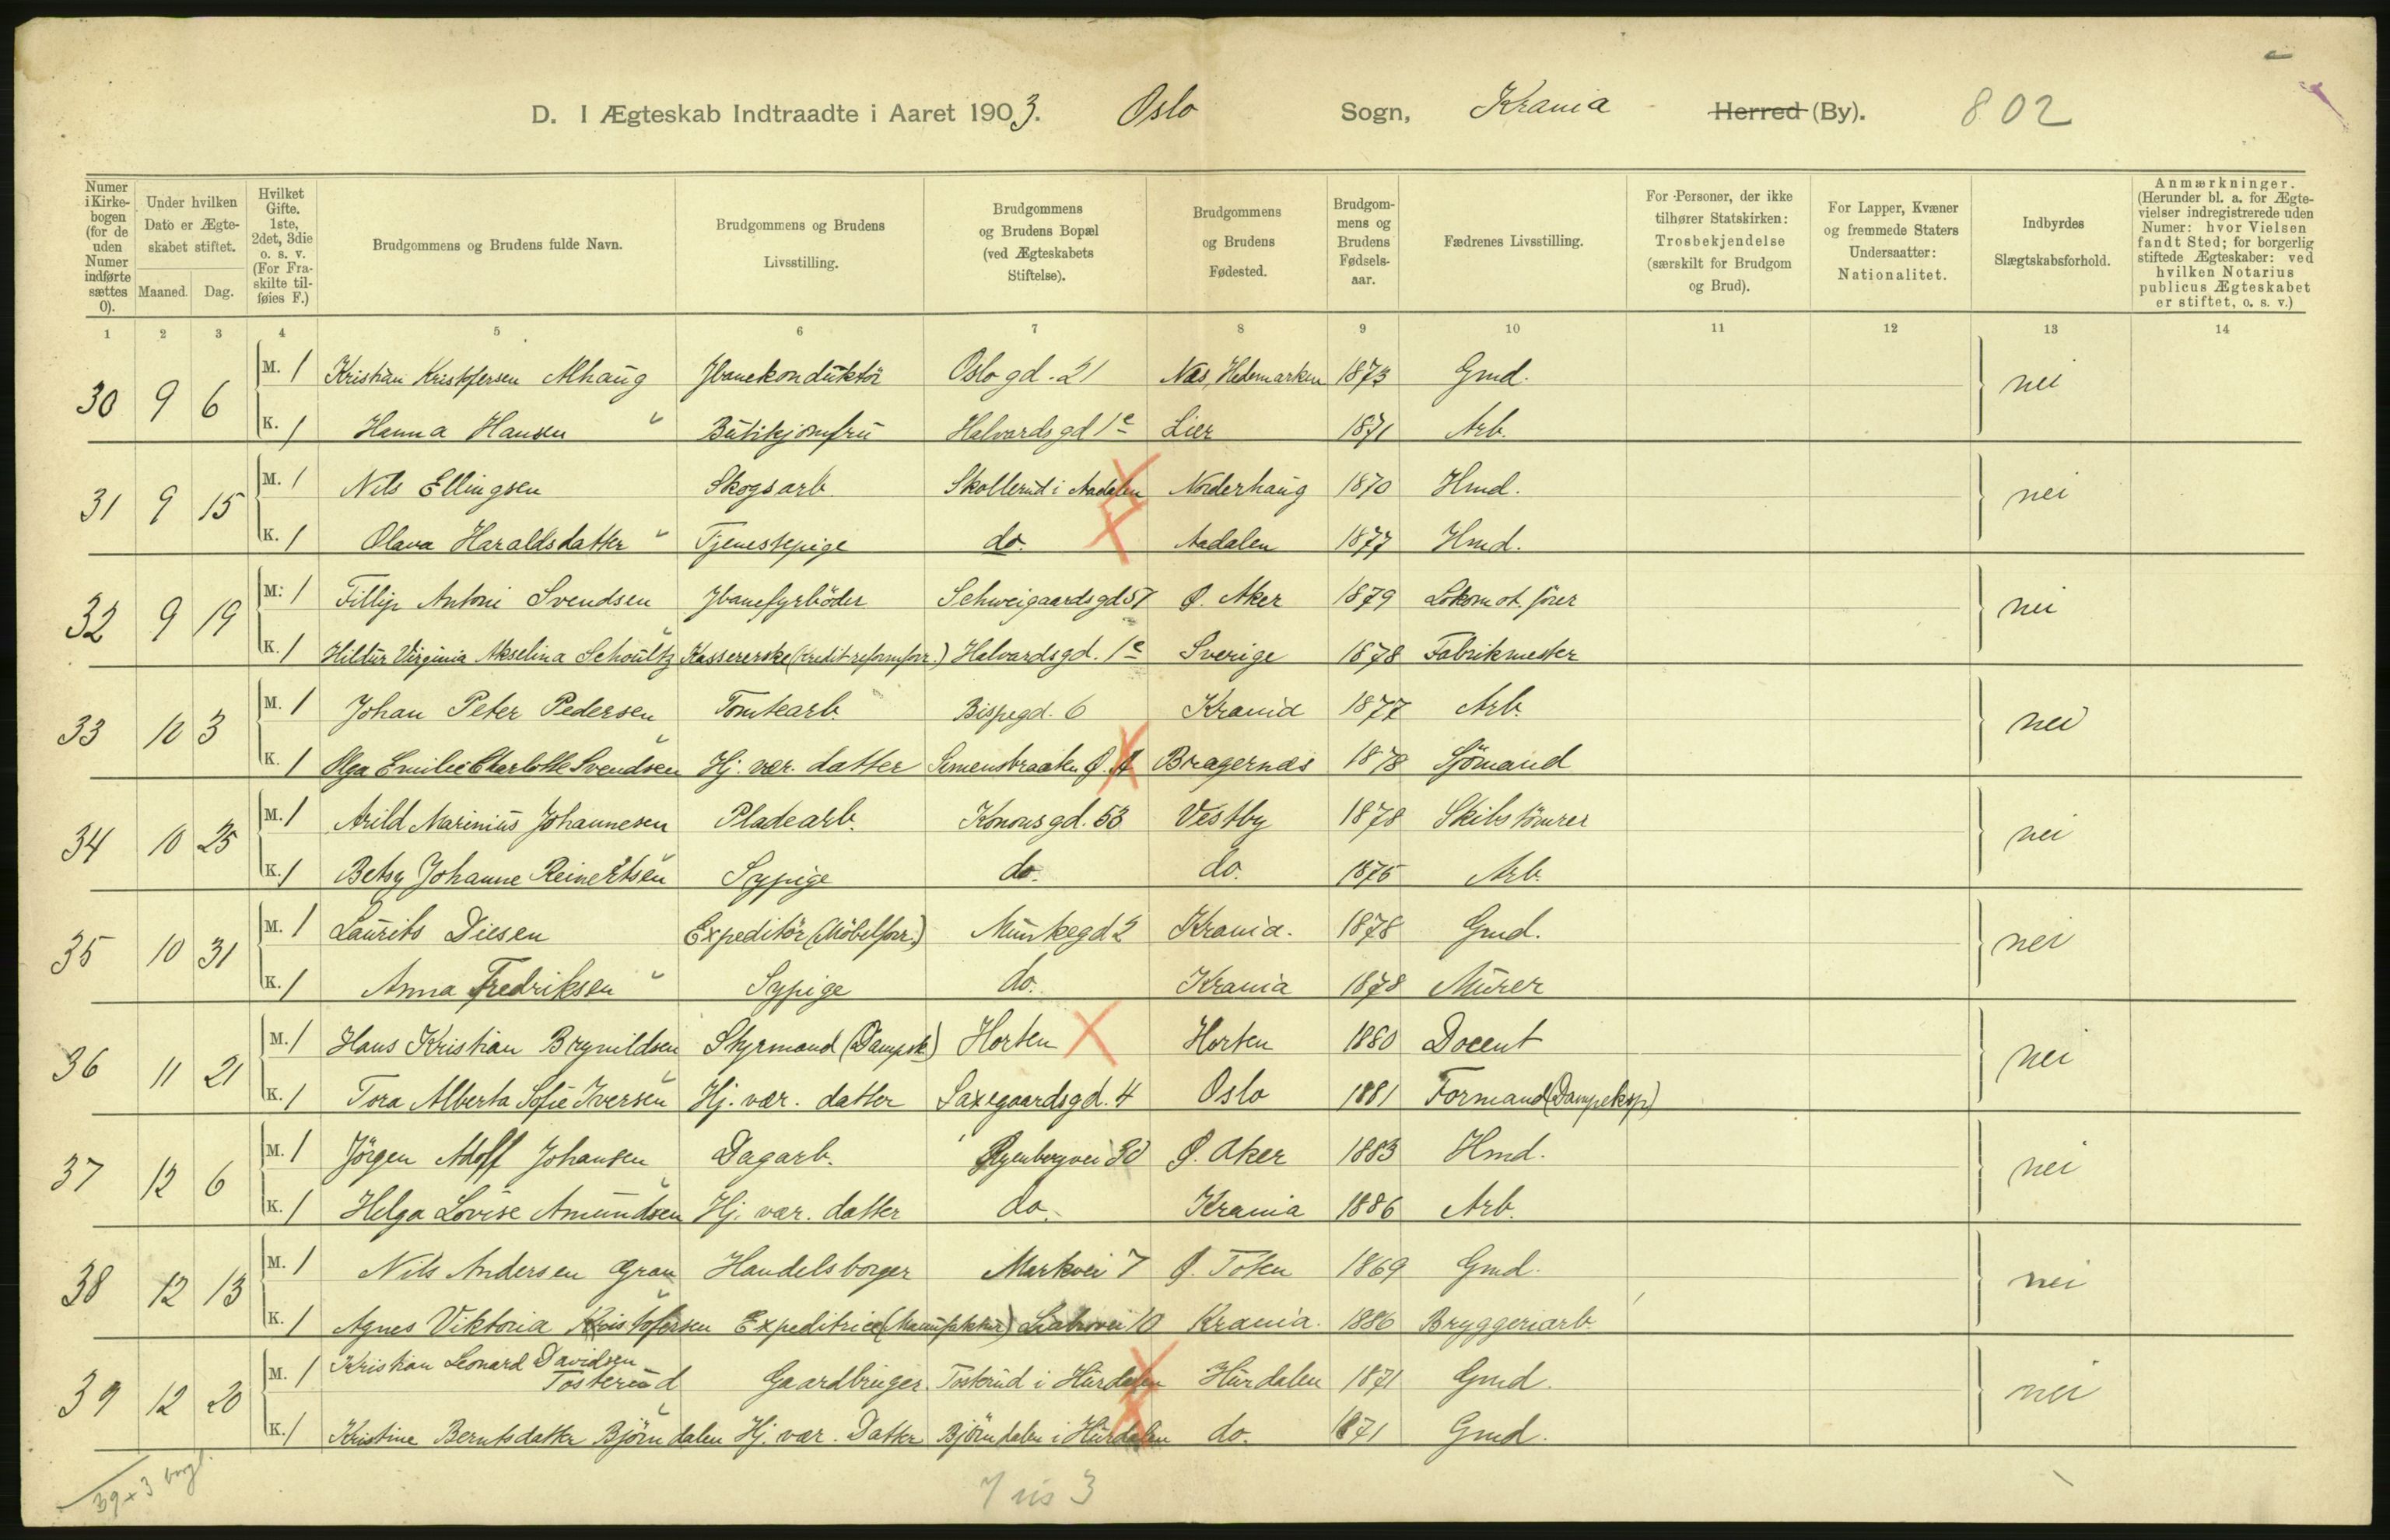 D. I Ægteskab Indtraadte i Aaret 1903. Oslo Sogn, Krania Herred (By). 802
Numer i Kirkebogen (for de uden Numer indførte sættes 0).
Under hvilken Dato er Ægteskabet stiftet.
Maaned. Dag.
Hvilket Gifte. 1ste, 2det, 3die o. s. v. (For Fraskilte tilføies F.)
Brudgommens og Brudens fulde Navn.
Brudgommens og Brudens Livsstilling.
Brudgommens og Brudens Bopæl (ved Ægteskabets Stiftelse).
Brudgommens og Brudens Fødested.
Brudgommens og Brudens Fødselsaar.
Fædrenes Livsstilling.
For Personer, der ikke tilhører Statskirken: Trosbekjendelse (særskilt for Brudgom og Brud).
For Lapper, Kvæner og fremmede Staters Undersaatter: Nationalitet.
Indbyrdes Slægtskabsforhold.
Anmærkninger. (Herunder bl. a. for Ægtevielser indregistrerede uden Numer: hvor Vielsen fandt Sted; for borgerlig stiftede Ægteskaber: ved hvilken Notarius publicus Ægteskabet er stiftet, o. s. v.)
1 2 3 4 5 6 7 8 9 10 11 12 13 14
30 9 6 M. 1 Kristian Kristofersen Alhaug Jbanekonduktör Oslogd. 21 Næs, Hedemarken 1873 Gmd. nei
K. 1 Hanna Hansen Butikjomfru Halvardsgd 1c Lier 1871 Arb.
31 9 15 M. 1 Nils Ellingsen Skogsarb. Skollerud i Aadalen Norderhaug 1870 Hmd. nei
K. 1 Olava Haraldsdatter Tjenestepige do. Aadalen 1877 Hmd.
32 9 19 M. 1 Fillip Antoni Svendsen Jbanefyrböder Schweigaardsgd 57 Ø. Aker 1879 Lokomot. förer nei
K. 1 Hildur Virginia Akselina Schoultz Kassererske (Kreditreformforr.) Halvardsgd. 1c Sverige 1878 Fabrikmester
33 10 3 M. 1 Johan Peter Pedersen Tomtearb. Bispegd. 6 Krania 1877 Arb. nei
K. 1 Olga Emilie Charlotte Svendsen Hj. vær. datter Simensbraaten Ø. A Bragernæs 1878 Sjömand
34 10 25 M. 1 Arild Marinius Johannesen Pladearb. Konowsgd. 53 Vestby 1878 Skibstömrer nei
K. 1 Betsy Johanne Reinertsen Sypige do. do. 1875 Arb.
35 10 31 M. 1 Laurits Diesen Expeditör (Möbelforr.) Munkegd 2 Krania. 1878 Gmd. nei
K. 1 Anna Fredriksen Sypige do. Krania 1878 Murer
36 11 21 M. 1 Hans Kristian Brynildsen Styrmand (Dampsk) Horten Horten 1880 Docent nei
K. 1 Tora Alberta Sofie Iversen Hj. vær. datter Saxegaardsgd. 4 Oslo 1881 Formand (Dampeksp)
37 12 6 M. 1 Jörgen Adolf Johansen Dagarb. Ryenbergvei 30 Ø. Aker 1883 Hmd. nei
K. 1 Helga Lovise Amundsen Hj. vær. datter do. Krania 1886 Arb.
38 12 13 M. 1 Nils Andersen Gran Handelsborger Markvei 7 Ø. Toten 1869 Gmd. nei
K. 1 Agnes Viktoria Kristofersen Expeditrice (Manufaktur) Liabrovei 10 Krania. 1886 Bryggeriarb.
39 12 20 M. 1 Kristian Leonard Davidsen
Tosterud Gaardbruger Tosterud i Hurdalen Hurdalen 1871 Gmd. nei
K. 1 Kristine Berntsdatter Björndalen Hj. vær. Datter Björndalen i Hurdalen do. 1871 Gmd.
39 + 3 borgl.
7 3